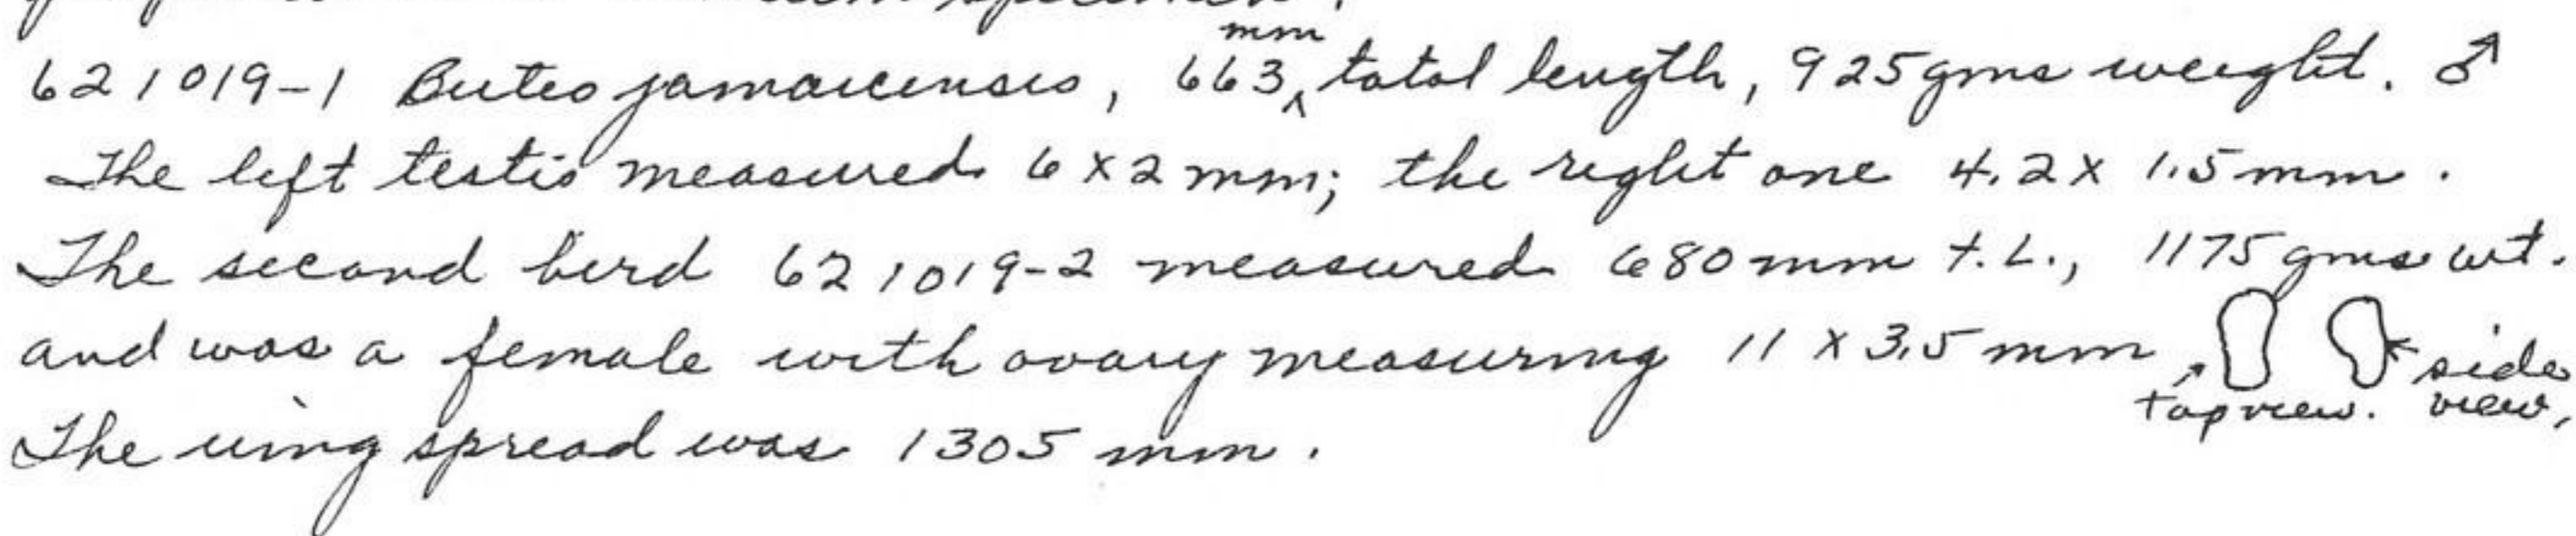 specimen.
621019-1 Buteo jamaicensis, 663 mm total length, 925 gms weight. ♂
The left testis measured 6 x 2 mm; the right one 4.2 x 1.5 mm.
The second bird 621019-2 measured 680 mm t.L., 1175 gms wt.
and was a female with ovary measuring 11 x 3.5 mm top view. side view,
The wing spread was 1305 mm.